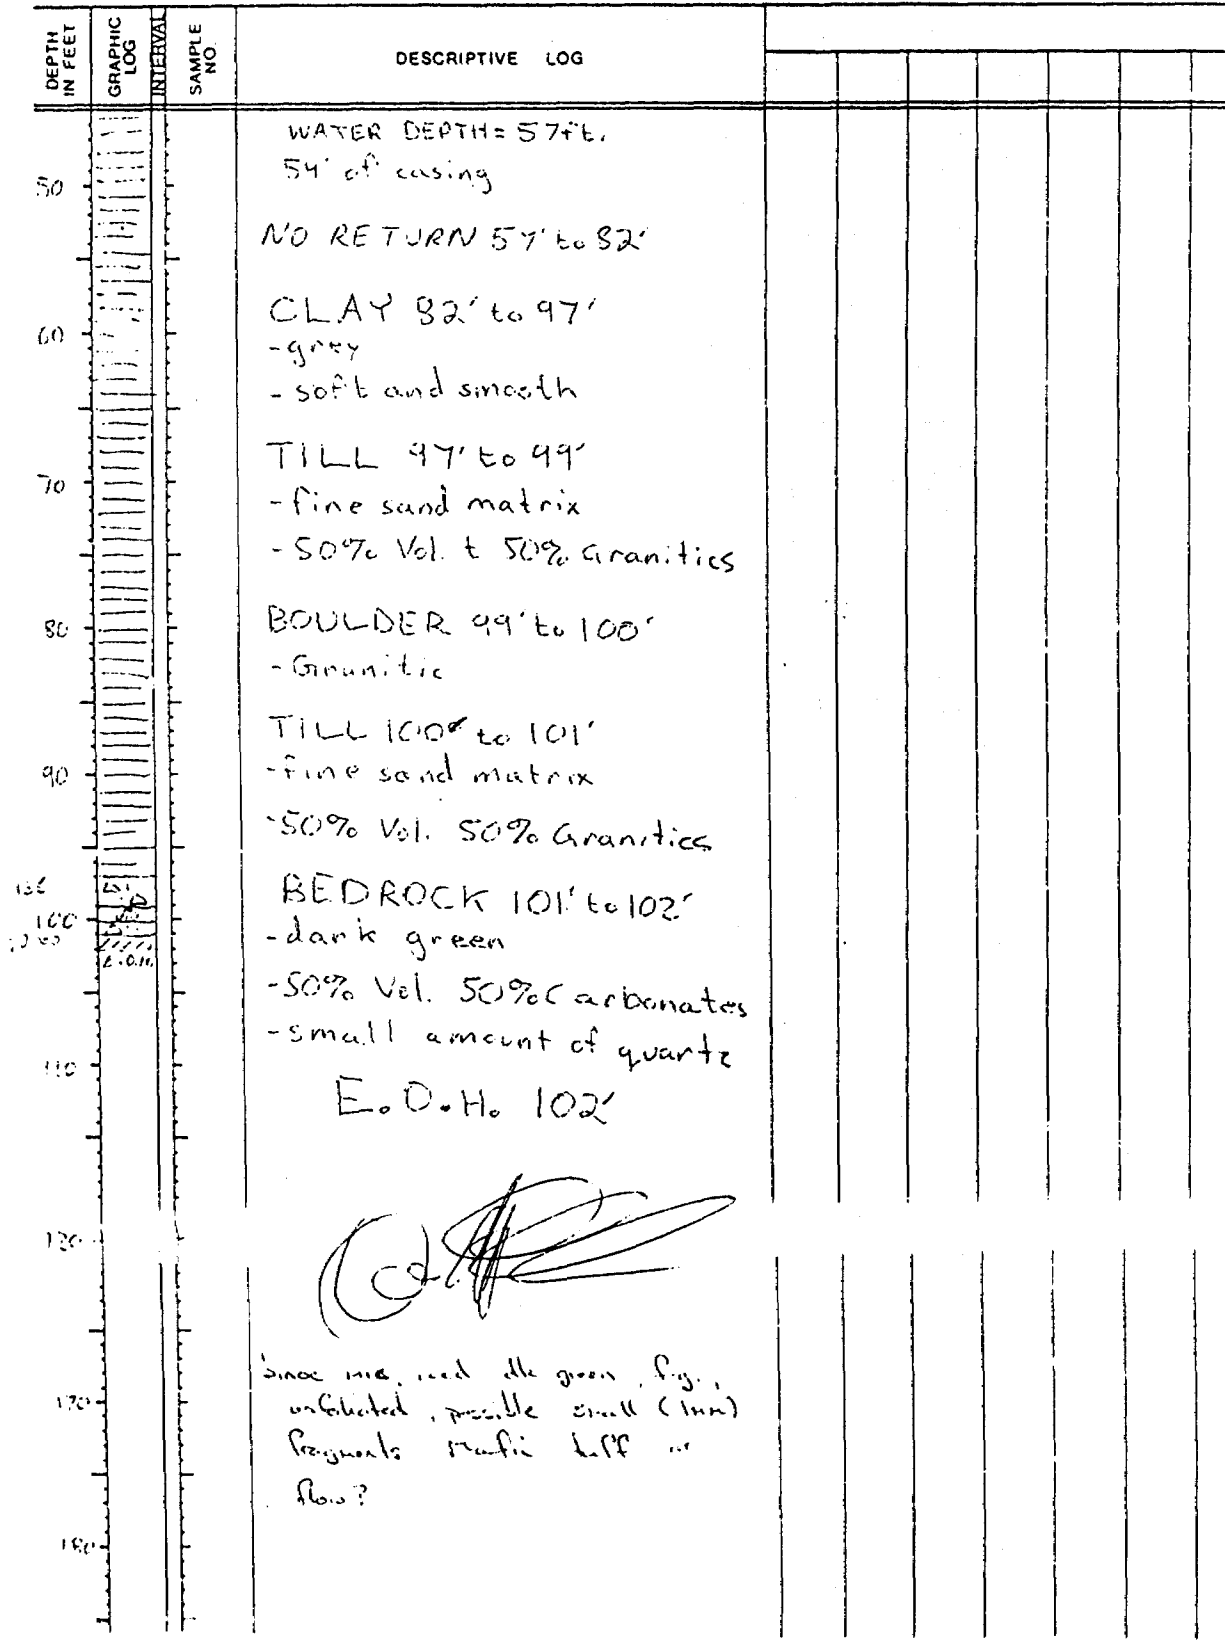 DEPTH IN FEET
GRAPHIC LOG
INTERVAL
SAMPLE NO.
DESCRIPTIVE LOG
WATER DEPTH = 57ft.
54' of casing
50
NO RETURN 57' to 82'
CLAY 82' to 97'
60
-grey
- soft and smooth
TILL 97' to 99'
70
- fine sand matrix
- 50% Vol. + 50% Granitics
BOULDER 99' to 100'
80
- Granitic
TILL 100' to 101'
90
-fine sand matrix
-50% Vol. 50% Granitics
BEDROCK 101' to 102'
100
-dark green
E.O.H.
-50% Vol. 50% Carbonates
-small amount of quartz
110
E.O.H. 102'
120
Since green, f.g.,
170
unfoliated, possible small (1mm)
fragments Mafic tuff or
flow?
180